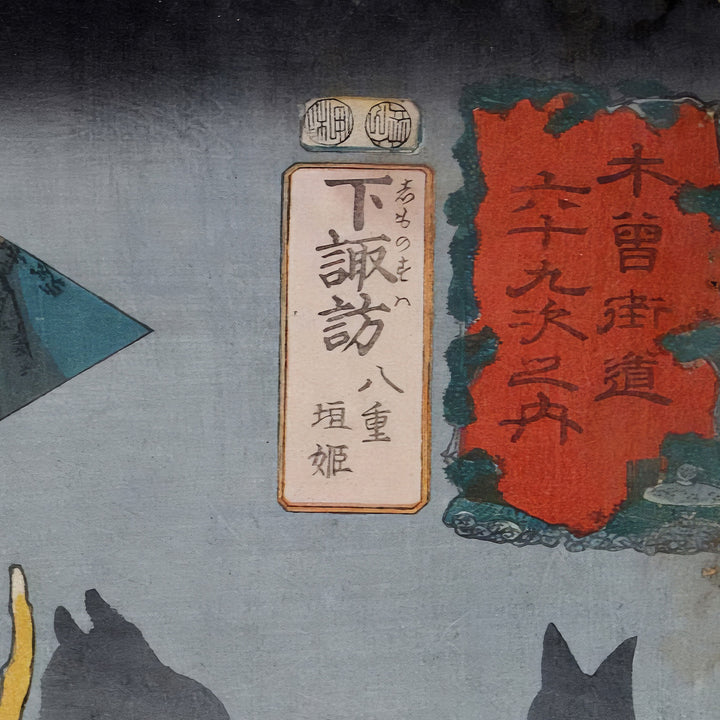 木曽街道
六十九次之内
下諏訪
しものすは
八重
垣姫